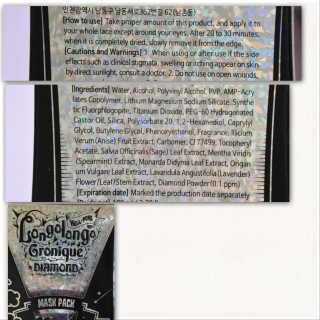 인천광역시 남동구 남동서로362번길 62(남촌동)
[How to use] Take proper amount of this product, and apply it to
your whole face except around your eyes. After 20 to 30 minutes,
when it is completely dried, slowly remove it from the edge.
[Cautions and Warnings] 1. When using or after use if the side
effects such as clinical stigmata, swelling or itching appear on skin
by direct sunlight, consult a doctor. 2. Do not use on open wounds,
[Ingredients] Water, Alcohol, Polyvinyl Alcohol, PVP, AMP-Acry
lates Copolymer, Lithium Magnesium Sodium Silicate, Synthe
tic Fluorphlogopite, Titanium Dioxide, PEG-60 Hydrogenated
Castor Oil, Silica, Polysorbate 20, 1,2-Hexanediol, Caprylyl
Glycol, Butylene Glycol, Phenoxyethanol, Fragrance, Illicium
Verum (Anise) Fruit Extract, Carbomer, CI 77499, Tocopheryl
Acetate, Salvia Officinalis (Sage) Leaf Extract, Mentha Viridis
(Spearmint) Extract, Monarda Didyma Leaf Extract, Origan
um Vulgare Leaf Extract, Lavandula Angustifolia (Lavender)
Flower/Leaf/Stem Extract, Diamond Powder (0.1 ppm)
[Expiration date] Marked the production date separately
Longolongo
Gronique
DIAMOND
MASK PACK